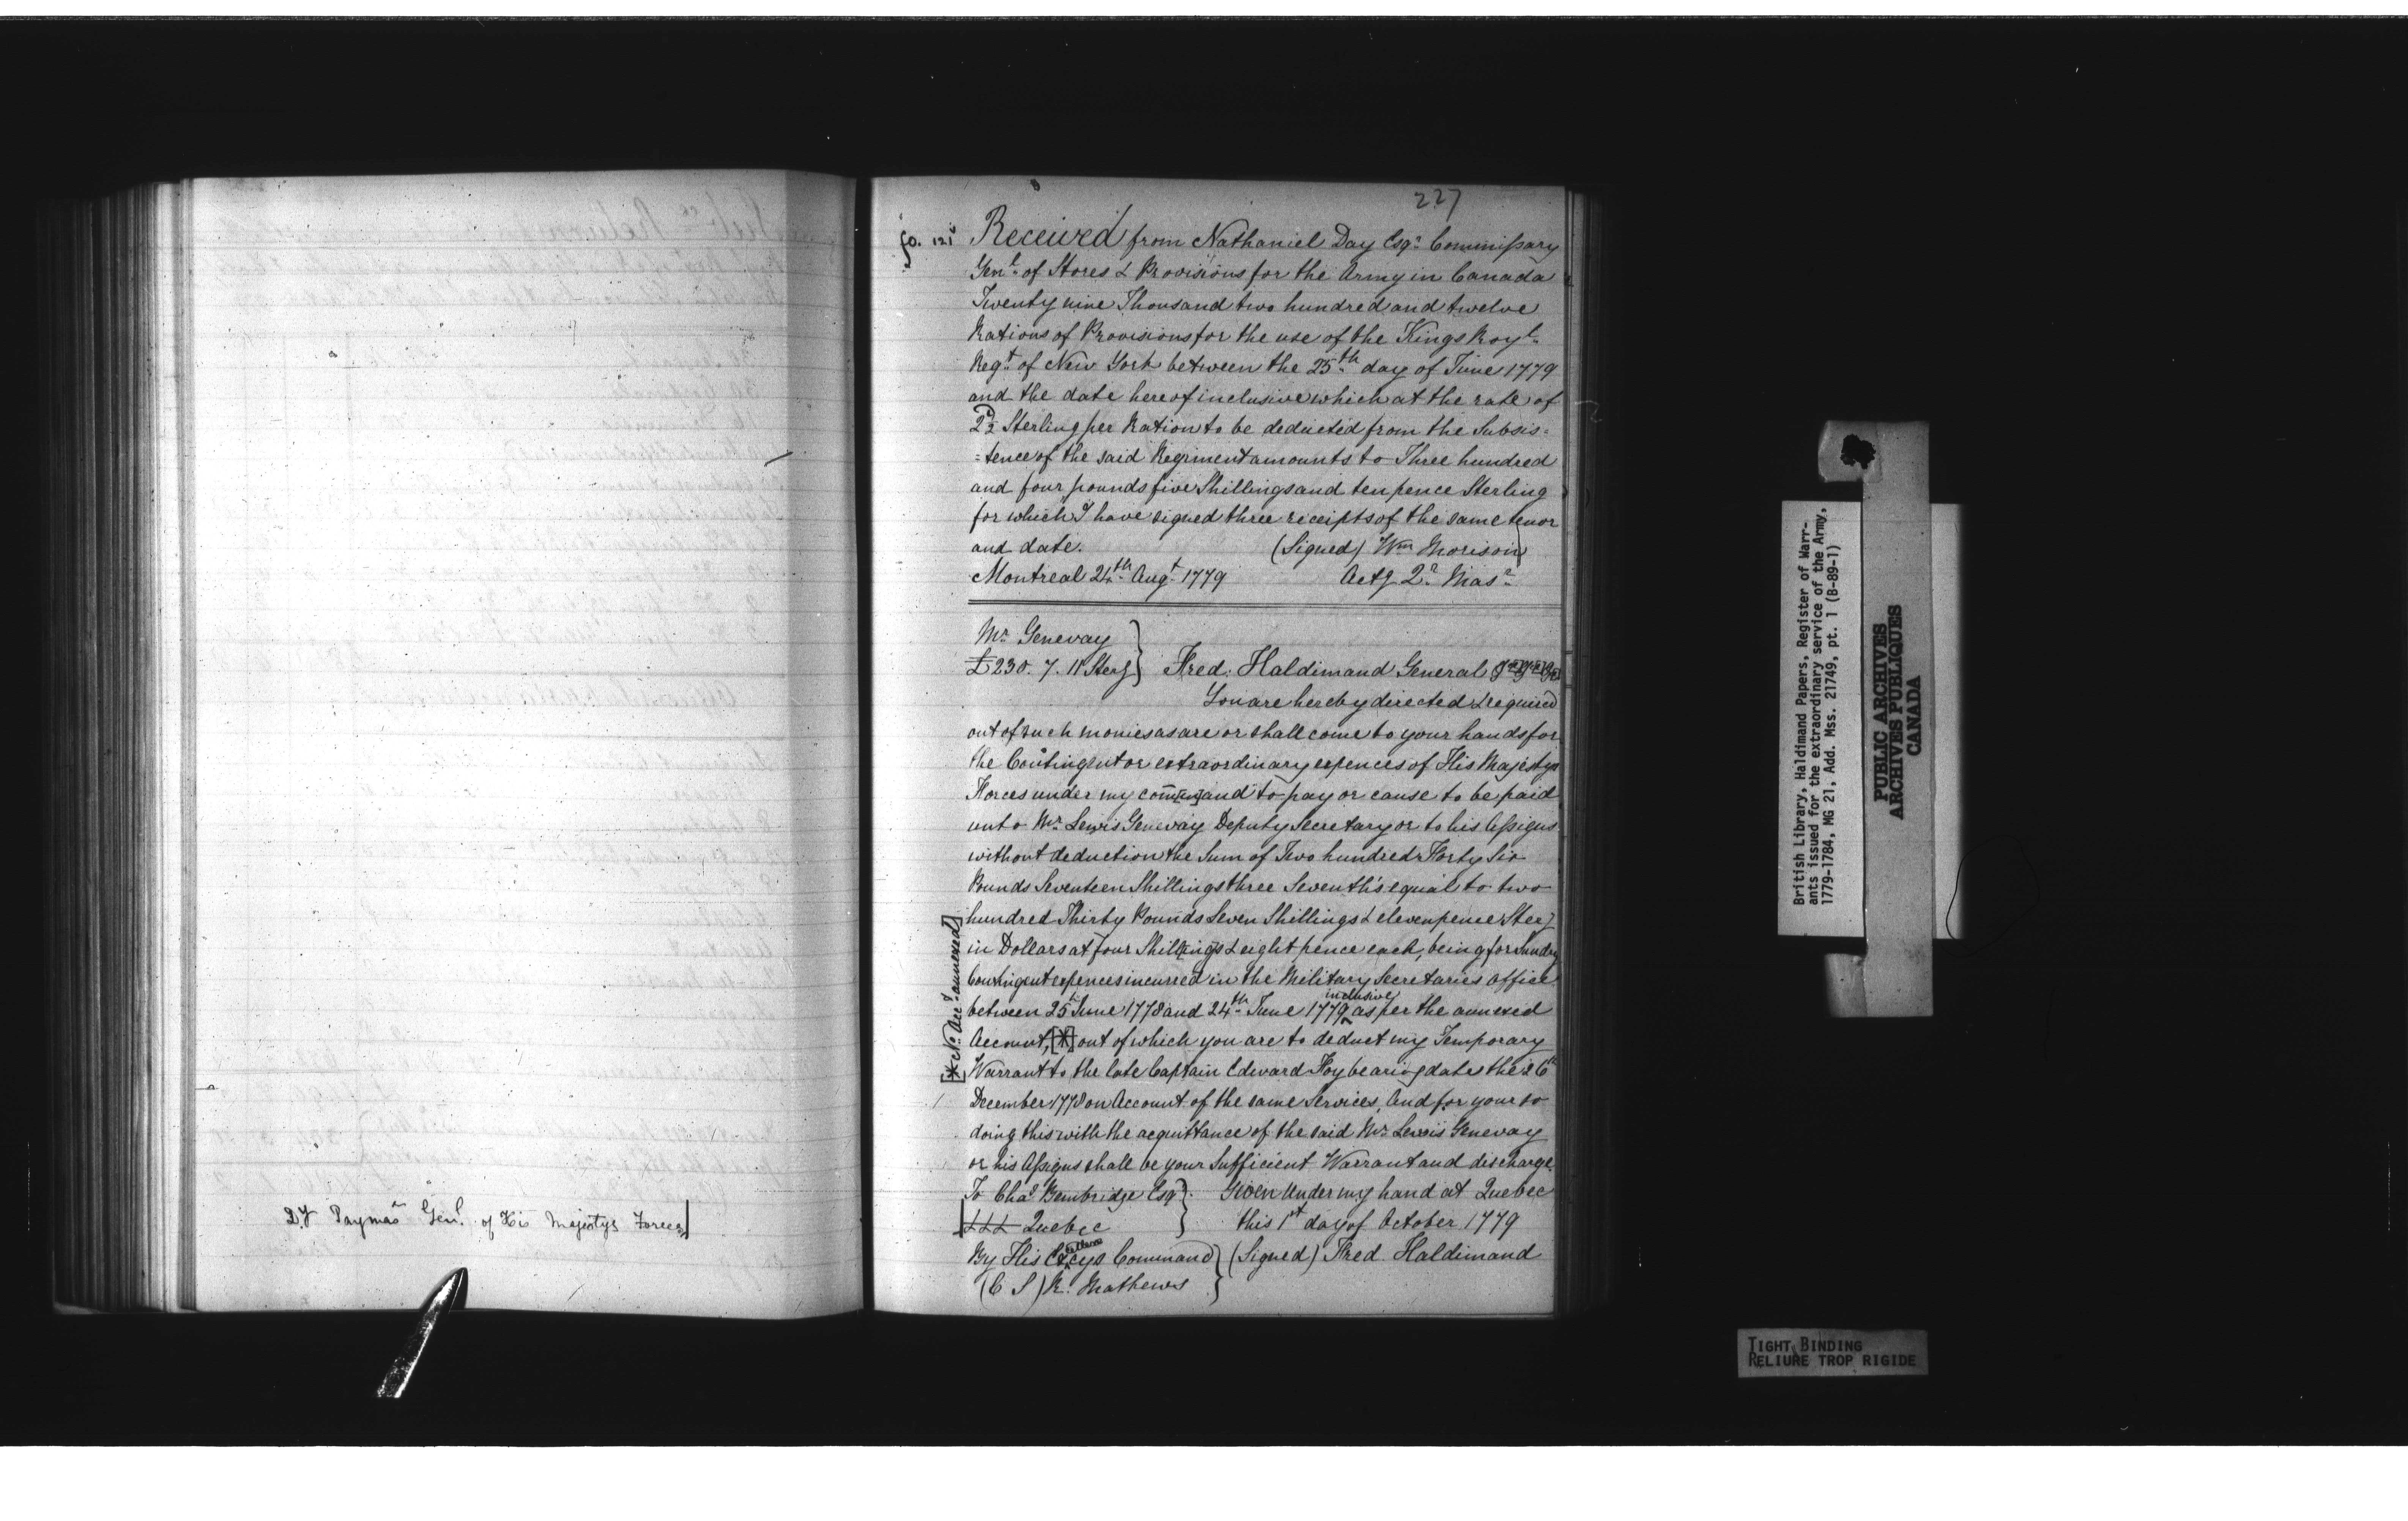 Dy Paymas Genl. of His Majestys Forces]
227
fo. 121
Received from Nathaniel Day Esqr. Commissary
Genl. of Stores & Provisions for the Army in Canada
Twenty nine Thousand two hundred and twelve
Rations of Provisions for the use of the Kings Royl.
Regt. of New York between the 25th day of June 1779
and the date hereof inclusive which at the rate of
2½d Sterling per Ration to be deducted from the Subsis=
=tence of the said Regiment amounts to Three hundred
and four pounds five Shillings and ten pence Sterling
for which I have signed three receipts of the same tenor
and date. (Signed) Wm Morison
Montreal 24th Augt. 1779 Actg Qr. Masr.
Mr. Genevay
£230. 7. 11 Sterg } Fred: Haldimand General
You are hereby directed & required
out of such monies as are or shall come to your hands for
the Contingent or extraordinary expences of His Majestys
Forces under my com[m]and to pay or cause to be paid
unto Mr. Lewis Genevay Deputy Secretary or to his Assigns
without deduction the Sum of Two hundred & Forty Six
Pounds Seventeen Shillings three Seventh's equal to two
hundred Thirty Pounds Seven Shillings & eleven pence Sterg
in Dollars at four Shillings & eight pence each, being for Sundry
Contingent expences incurred in the Military Secretaries Office
between 25th June 1778 and 24th June 1779 inclusive as per the annexed
Account, [*] out of which you are to deduct my Temporary
Warrant to the late Captain Edward Foy bearing date the 26th
December 1778 on Account of the same Services, And for your so
doing this with the acquittance of the said Mr. Lewis Genevay
or his Assigns shall be your Sufficient Warrant and discharge.
[* No. Acct. annexed]
To Chas. Bembridge Esqr }. Given Under my hand at Quebec
[&&& Quebec } this 1st day of October 1779
By His Excellencys Command } (Signed) Fred. Haldimand
(C S) R. Mathews }
British Library, Haldimand Papers, Register of Warr-
ants issued for the extraordinary service of the Army,
1779-1784, MG 21, Add. Mss. 21749, pt. 1 (B-89-1)
PUBLIC ARCHIVES
ARCHIVES PUBLIQUES
CANADA
TIGHT BINDING
RELIURE TROP RIGIDE